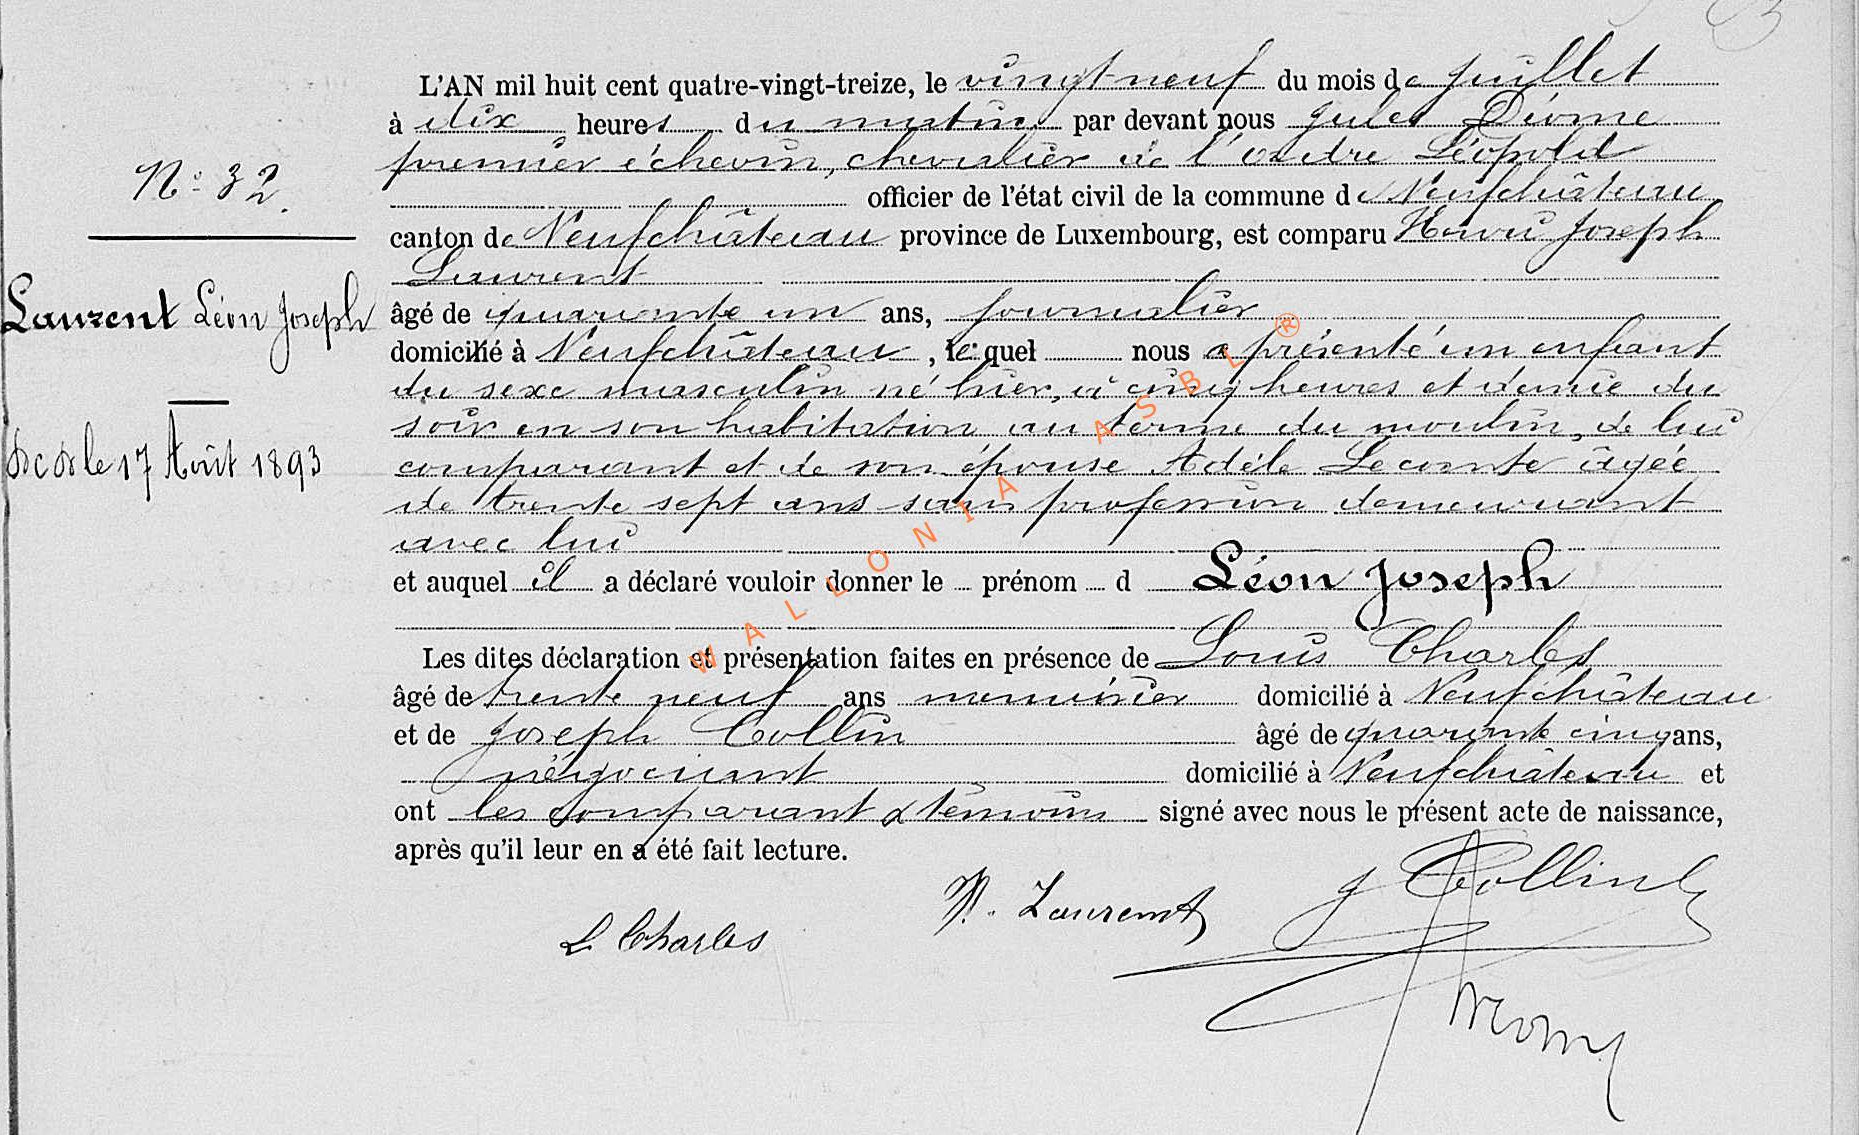 L'AN mil huit cent quatre-vingt-treize, le vingt neuf du mois de Juillet
à dix heures du matin par devant nous Jules Diome
premier échevin, chevalier de l'ordre Léopold
officier de l'état civil de la commune de Neufchâteau
canton de Neufchâteau province de Luxembourg, est comparu Henri Joseph
Laurent
âgé de quarante un ans, journalier
domicilié à Neufchâteau, lequel nous a présenté un enfant
du sexe masculin né hier, à cinq heures et demie du
soir en son habitation au terme du moulin, de lui
comparant et de son épouse Adèle Lecomte âgée
de trente sept ans sans profession demeurant
avec lui
et auquel il a déclaré vouloir donner le prénom d Léon Joseph
Les dites déclaration et présentation faites en présence de Louis Charles
âgé de trente neuf ans menuisier domicilié à Neufchâteau
et de Joseph Collin âgé de quarante cinq ans,
négociant domicilié à Neufchâteau et
ont les comparant & témoins signé avec nous le présent acte de naissance,
après qu'il leur en a été fait lecture.
N° 32.
Laurent Léon Joseph
Dcdé le 17 Août 1893
L Charles
H. Laurent
J Collin
WALLONIA ASBL ®